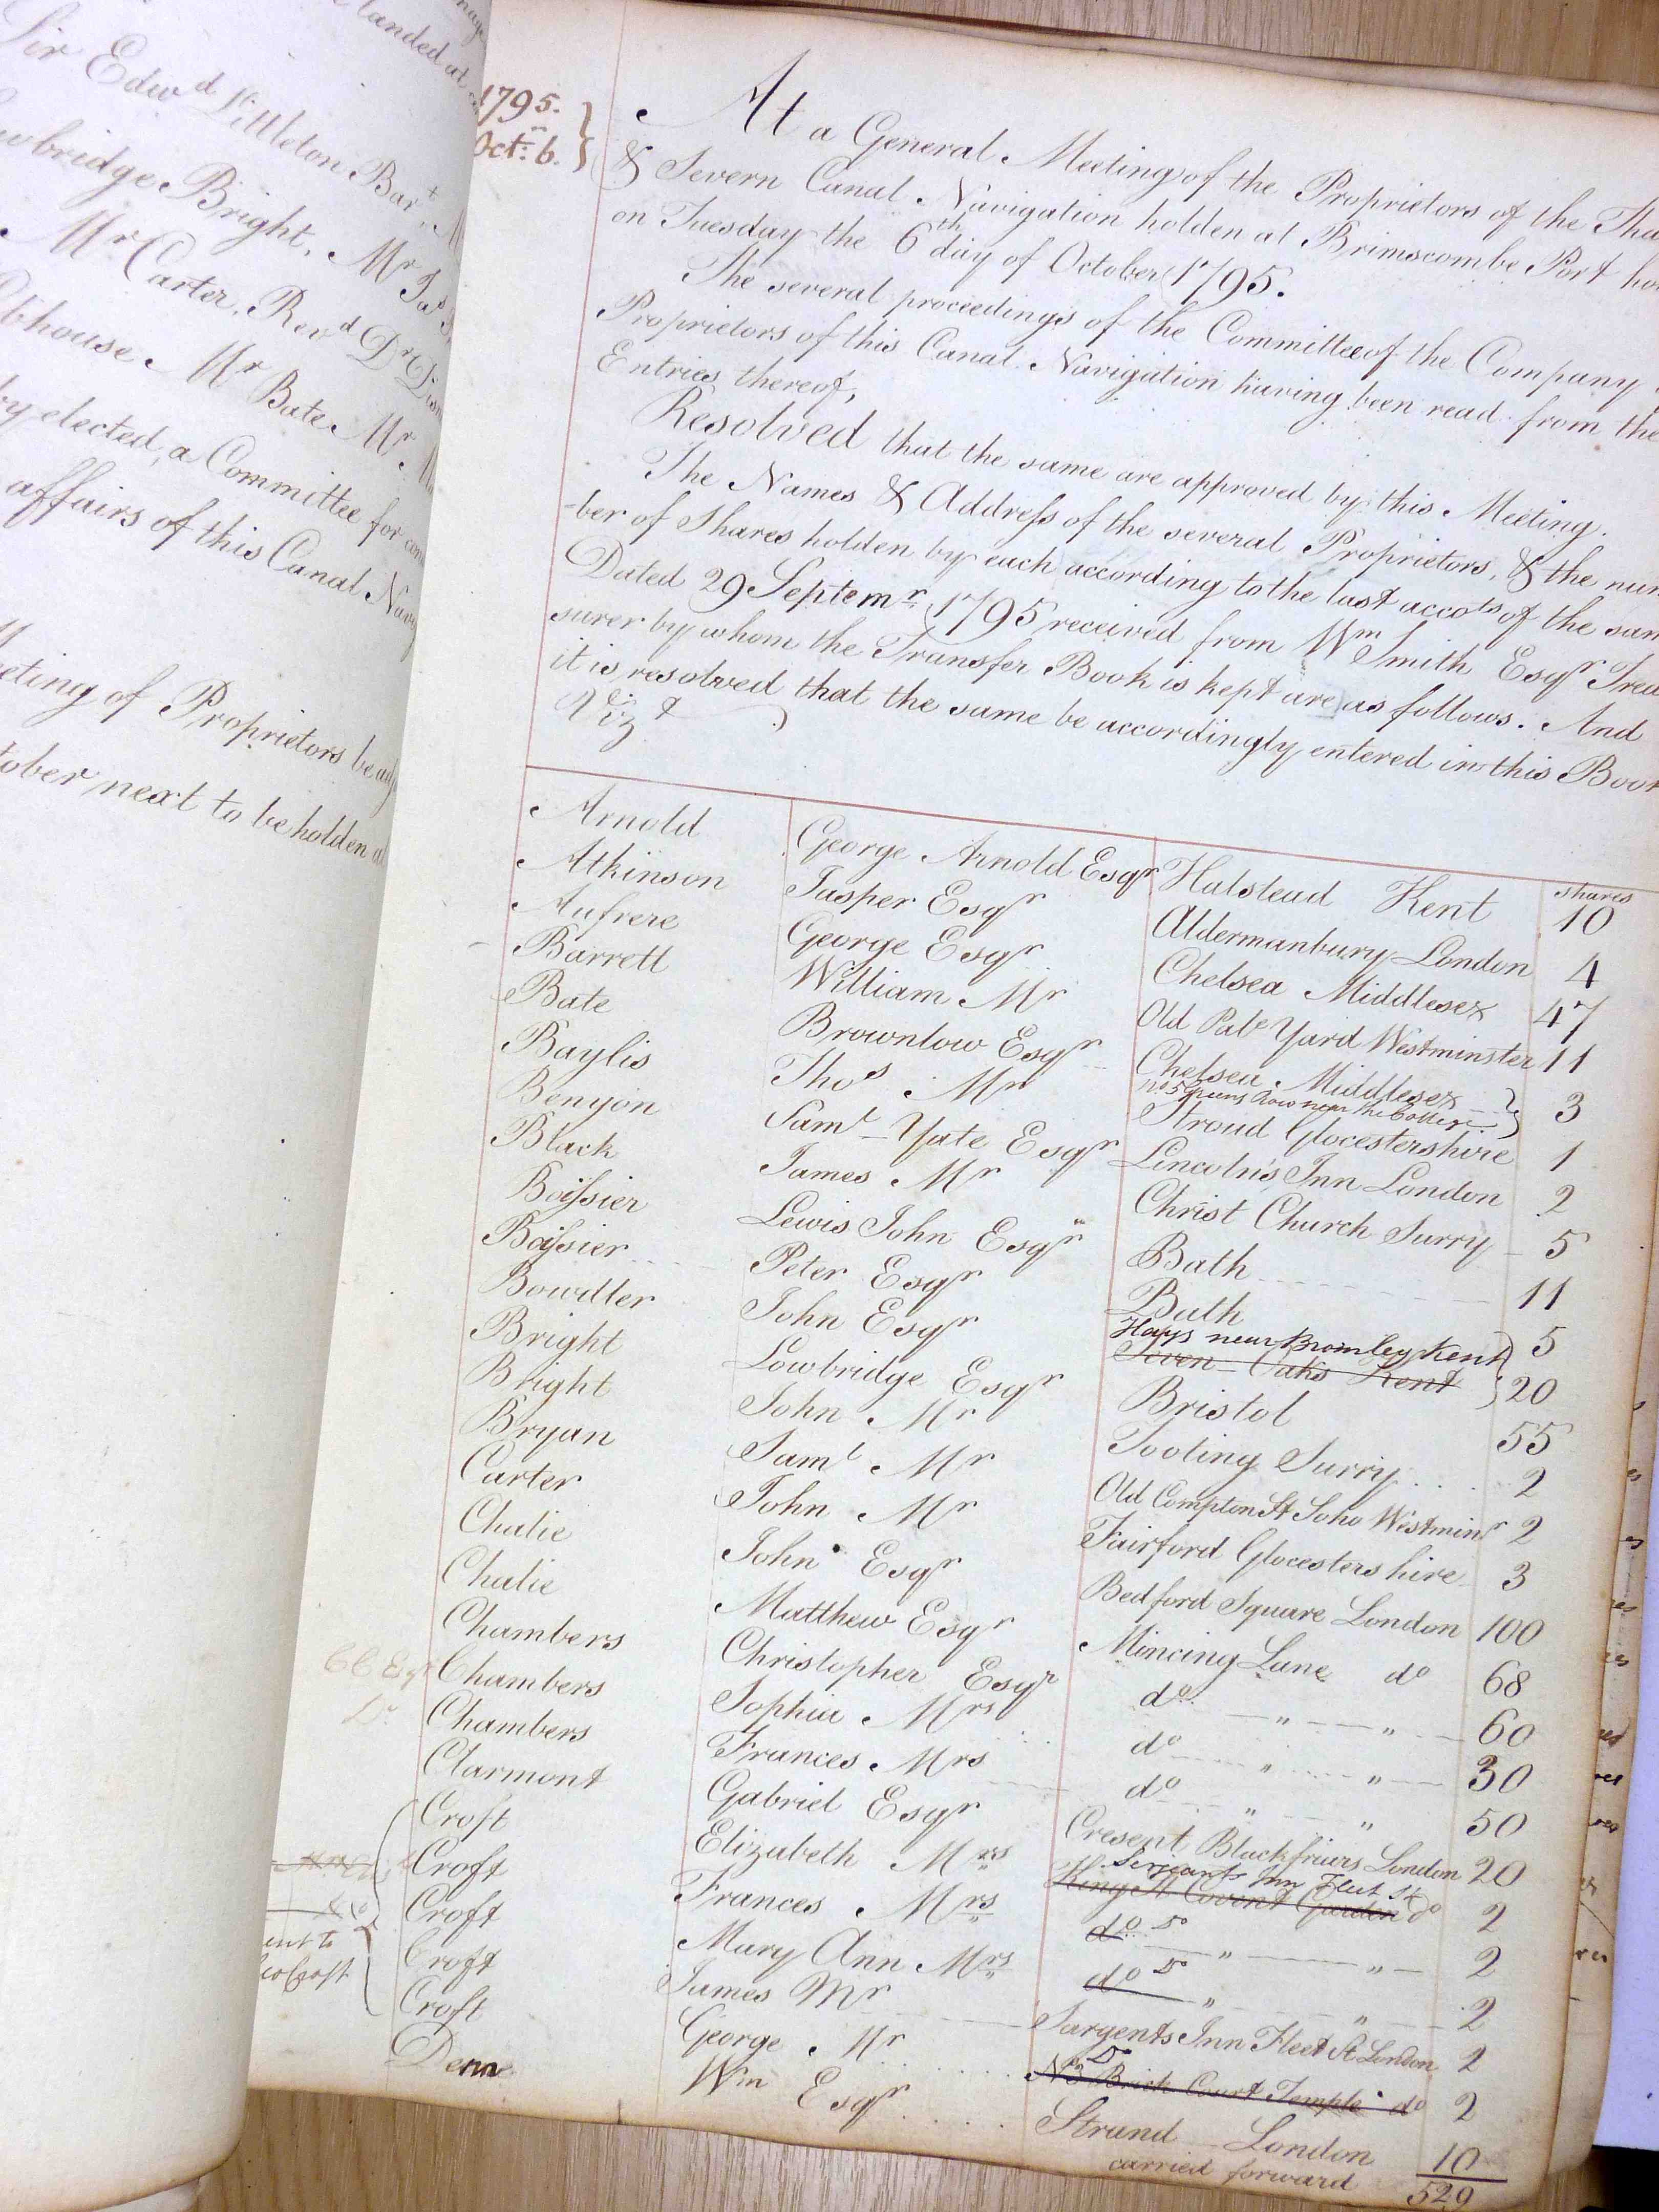 landed at
Sir Edwd Littleton Bart. M
wbridge Bright, Mr Jas
Mr Carter, Revd Dr
bhouse Mr Bate Mr
by elected, a Committee for con
affairs of this Canal Nav
eeting of Proprietors be adj
tober next to be holden a
1795.
Octr. 6.
At a General Meeting of the Proprietors of the Tha
& Severn Canal Navigation holden at Brimscombe Port
on Tuesday the 6th day of October 1795.
The several proceedings of the Committee of the Company
Proprietors of this Canal Navigation having been read from the
Entries thereof,
Resolved that the same are approved by this Meeting.
The Names & Address of the several Proprietors, & the num
-ber of Shares holden by each according to the last accots of the sam
Dated 29 Septemr 1795 received from Wm Smith Esqr Trea
surer by whom the Transfer Book is kept are as follows. And
it is resolved that the same be accordingly entered in this Book
Vizt
shares
Arnold George Arnold Esqr Halstead Kent 10
Atkinson Jasper Esqr Aldermanbury London 4
Aufrere George Esqr Chelsea Middlesex 47
Barrett William Mr Old Pale Yard Westminster 11
Bate Brownlow Esqr Chelsea Middlesex 3
No 5 Row near the
Baylis Thos Mr Stroud Glocestershire 1
Benyon Saml Yate Esqr Lincoln's Inn London 2
Black James Mr Christ Church Surry 5
Boissier Lewis John Esqr Bath 11
Boissier Peter Esqr Bath 5
Hays near Bromley Kent
Bowdler John Esqr Seven Oaks Kent 20
Bright Lowbridge Esqr Bristol 55
Bright John Mr Tooting Surry 2
Bryan Saml Mr Old Compton St Soho Westminr 2
Carter John Mr Fairford Glocestershire 3
Chalie John Esqr Bedford Square London 100
Chalie Matthew Esqr Mincing Lane do 68
Chambers Christopher Esqr do " " 60
Chambers Sophia Mrs do " " 30
Chambers Frances Mrs do " " 50
Clarmont Gabriel Esqr Cresent Blackfriars London 20
Serjeants Inn Fleet St
Croft Elizabeth Mrs King St Covent Garden do 2
Croft Frances Mrs do Do " " 2
Croft Mary Ann Mrs do Do " " 2
ent to
Croft James Mr Sargents Inn Fleet St London 2
Do
Croft George Mr No 3 Brick Court Temple do 2
Denn Wm Esqr Strand London 10
carried forward 529